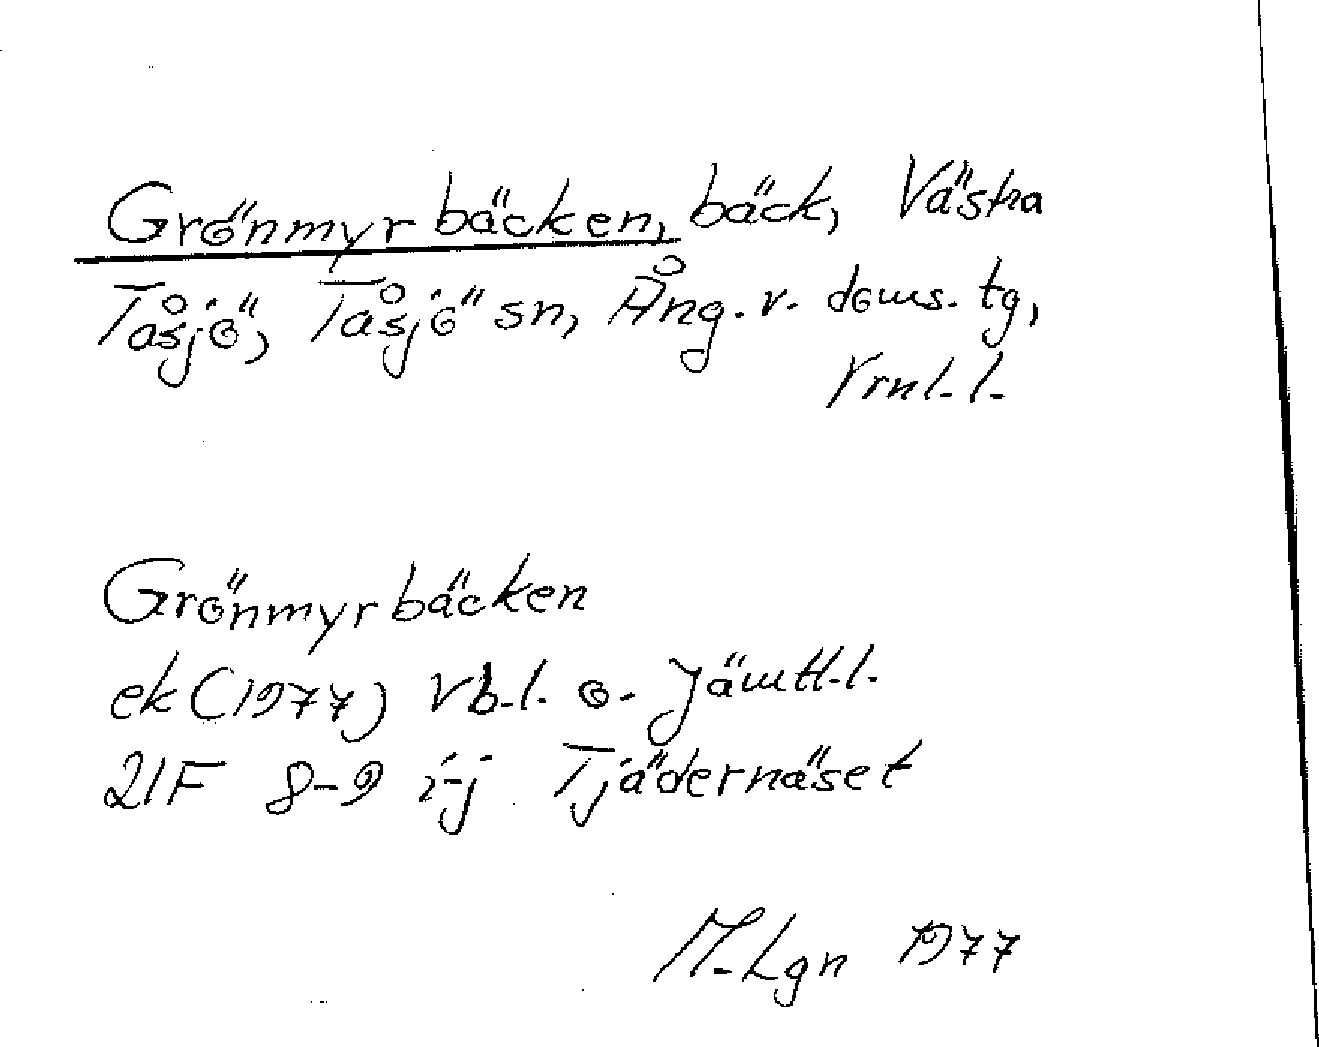 Grönmyrbäcken, bäck, Västra
Tåsjö, Tåsjö sn, Ång. v. doms. tg,
Vrnl. l.
Grönmyrbäcken
ek (1977) Vb. l. o. Jämtl. l.
21F 8-9 i-j Tjädernäset
M. Lgn 1977